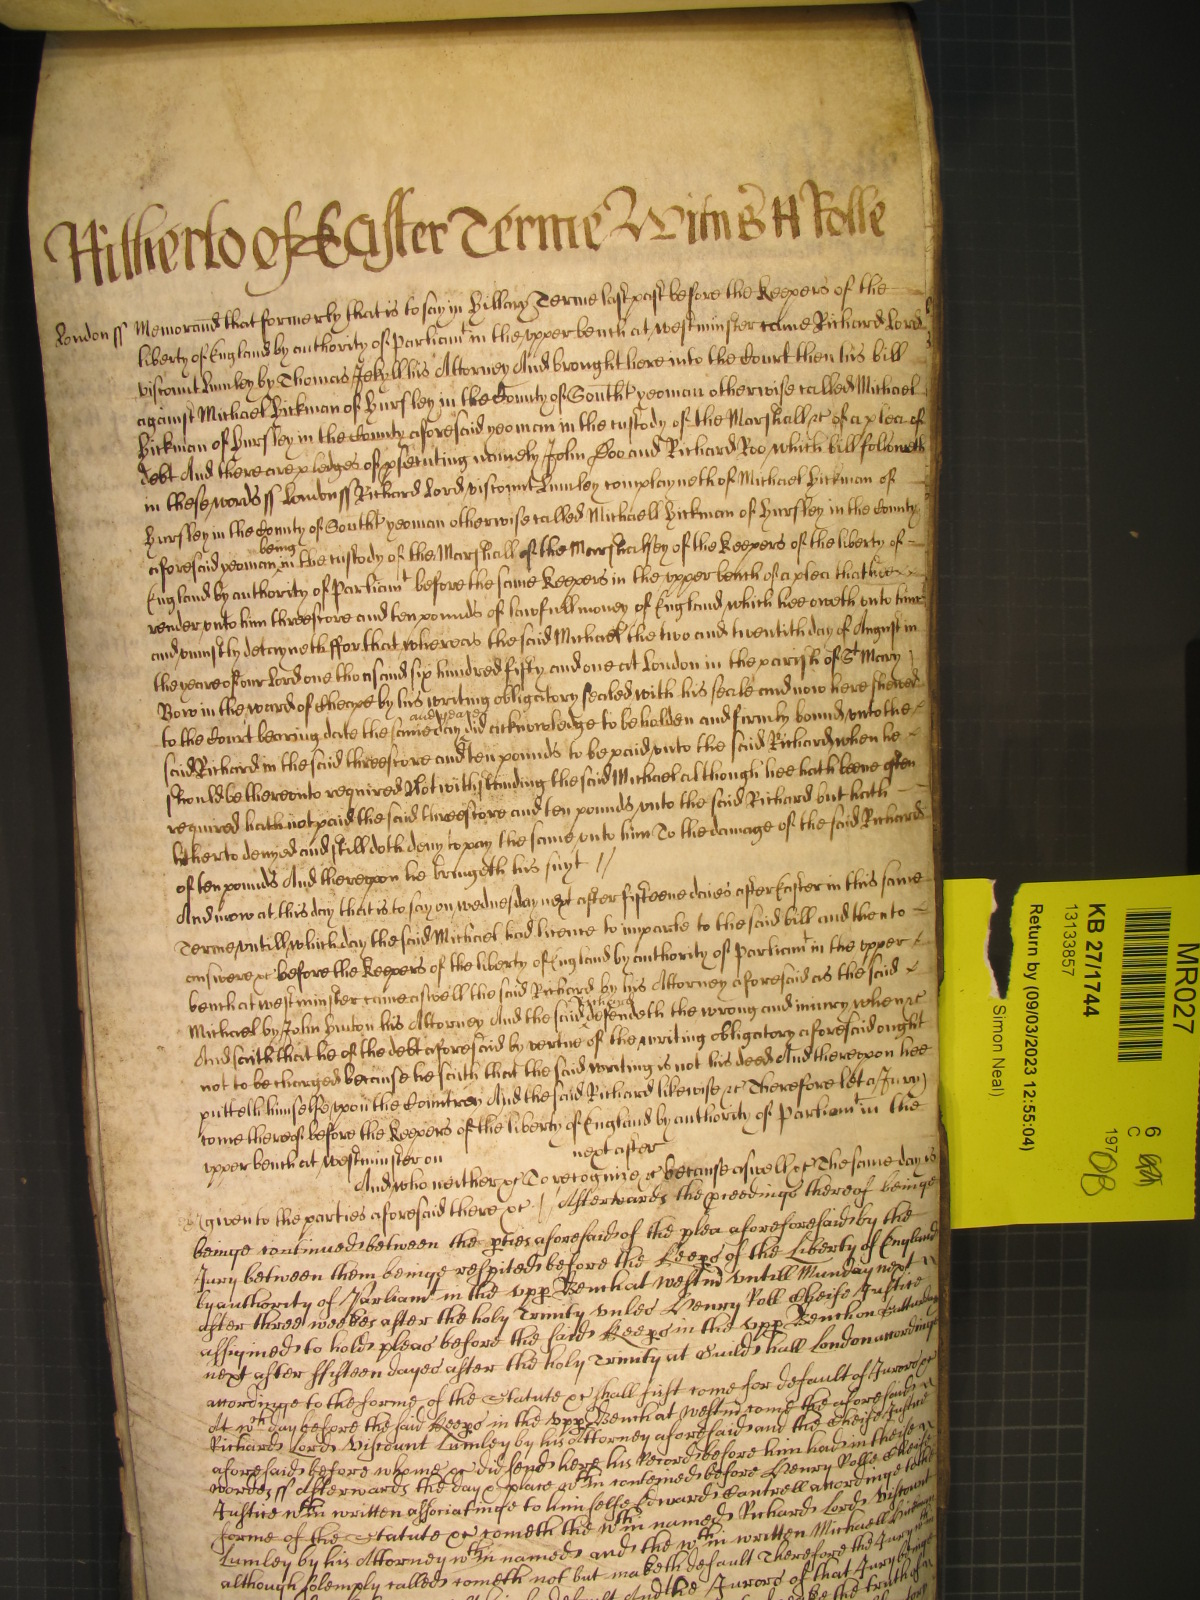 Hitherto of Easter Terme Witnes H Rolle
London ss Memorand that formerly that is to say in Hillary Terme last past before the Keepers of the
liberty of England by authority of Parliamt in the upper bench at westminster came Richard Lord
viscount Lumley by Thomas Jekyll his Attorney And brought here into the Court then his bill
against Michael Bickman of Hursley in the County of Southt yeoman otherwise called Michael
Bickman of Hursley in the County aforesaid yeoman in the custody of the Marshall &c of a plea of
debt And there are pledges of psecuting namely John Doo and Richard Roo which bill followeth
in these words ss London ss Richard Lord viscount Lumley complayneth of Michael Bickman of
Hursley in the County of Southt yeoman otherwise called Michaell Bickman of Hursley in the County
aforesaid yeoman being in the custody of the Marshall of the Marshalsey of the Keepers of the liberty of
England by authority of Parliamt before the same Keepers in the upper bench of a plea that hee
render unto him threescore and ten pounds of lawfull money of England which hee oweth unto him
and uniustly detayneth ffor that whereas the said Michael the two and twentith day of August in
the yeare of our Lord one thousand six hundred fifty and one at London in the parish of St Mary
Bow in the ward of Cheape by his writing obligatory sealed with his seale and now here shewed
to the Court bearing date the same day and yeare did acknowledge to be holden and firmly bound unto the
said Richard in the said threescore and ten pounds to be paid unto the said Richard when he
should be thereunto required Notwithstanding the said Michael although hee hath beene often
required hath not paid the said threescore and ten pounds unto the said Richard but hath
hitherto denyed and still doth deny to pay the same unto him To the damage of the said Richard
of ten pounds And thereupon he bringeth his suyt //
And now at this day that is to say on wednesday next after fifteene daies after Easter in this same
Terme untill which day the said Michael had licence to imparle to the said bill and then to
answere &c before the Keepers of the liberty of England by authority of Parliamt in the upper
bench at westminster came aswell the said Richard by his Attorney aforesaid as the said
Michael by John Buton his Attorney And the said Michael defendeth the wrong and iniury when &c
And saith that he of the debt aforesaid by vertue of the writing obligatory aforesaid ought
not to be charged because he saith that the said writing is not his deed And thereupon hee
putteth himselfe upon the Countrey And the said Richard likewise &c Therefore let a Jury
come thereof before the Keepers of the liberty of England by authority of Parliamt in the
upper bench at westminster on next after
And who neither &c To recognize &c because aswell &c The same day is
given to the parties aforesaid there &c // Afterwards the pceedings thereof beinge
beinge continued between the pties aforesaid of the plea aforeforesaid by the
Jury between them beinge respited before the Keeps of the Liberty of England
by authority of Parliamt in the upp Bench at westm untill Munday next
after three weekes after the holy Trinity unles Henry Roll Cheife Justice
assigned to hold pleas before the said Keeps in the upp Bench on Satturday
next after ffifteen dayes after the holy Trinity at Guild hall London accordinge
accordinge to the forme of the Statute &c shall first come for default of Jurors &c
At wch day before the said Keeps in the upp Bench at westm come the aforesaid
Richard Lord Viscount Lumley by his Attorney aforesaid and the Cheife Justice
aforesaid before whome &c did send here his Record before him had in theise
wordes ss Afterwards the day & place wthin conteined before Henry Rolle Cheife
Justice wthin written associatinge to himselfe Edward Cantrell accordinge to the
forme of the Statute &c cometh the wthin named Richard Lord Viscount
Lumley by his Attorney wthin named and the wthin written Michaell Bickman
although solemply called cometh not but maketh default Therefore the Jury
default And the Jurors of that Jury beinge
the truth of
MR027
KB 27/1744
13133857
Return by (09/03/2023 12:55:04)
Simon Neal)
6
C
197